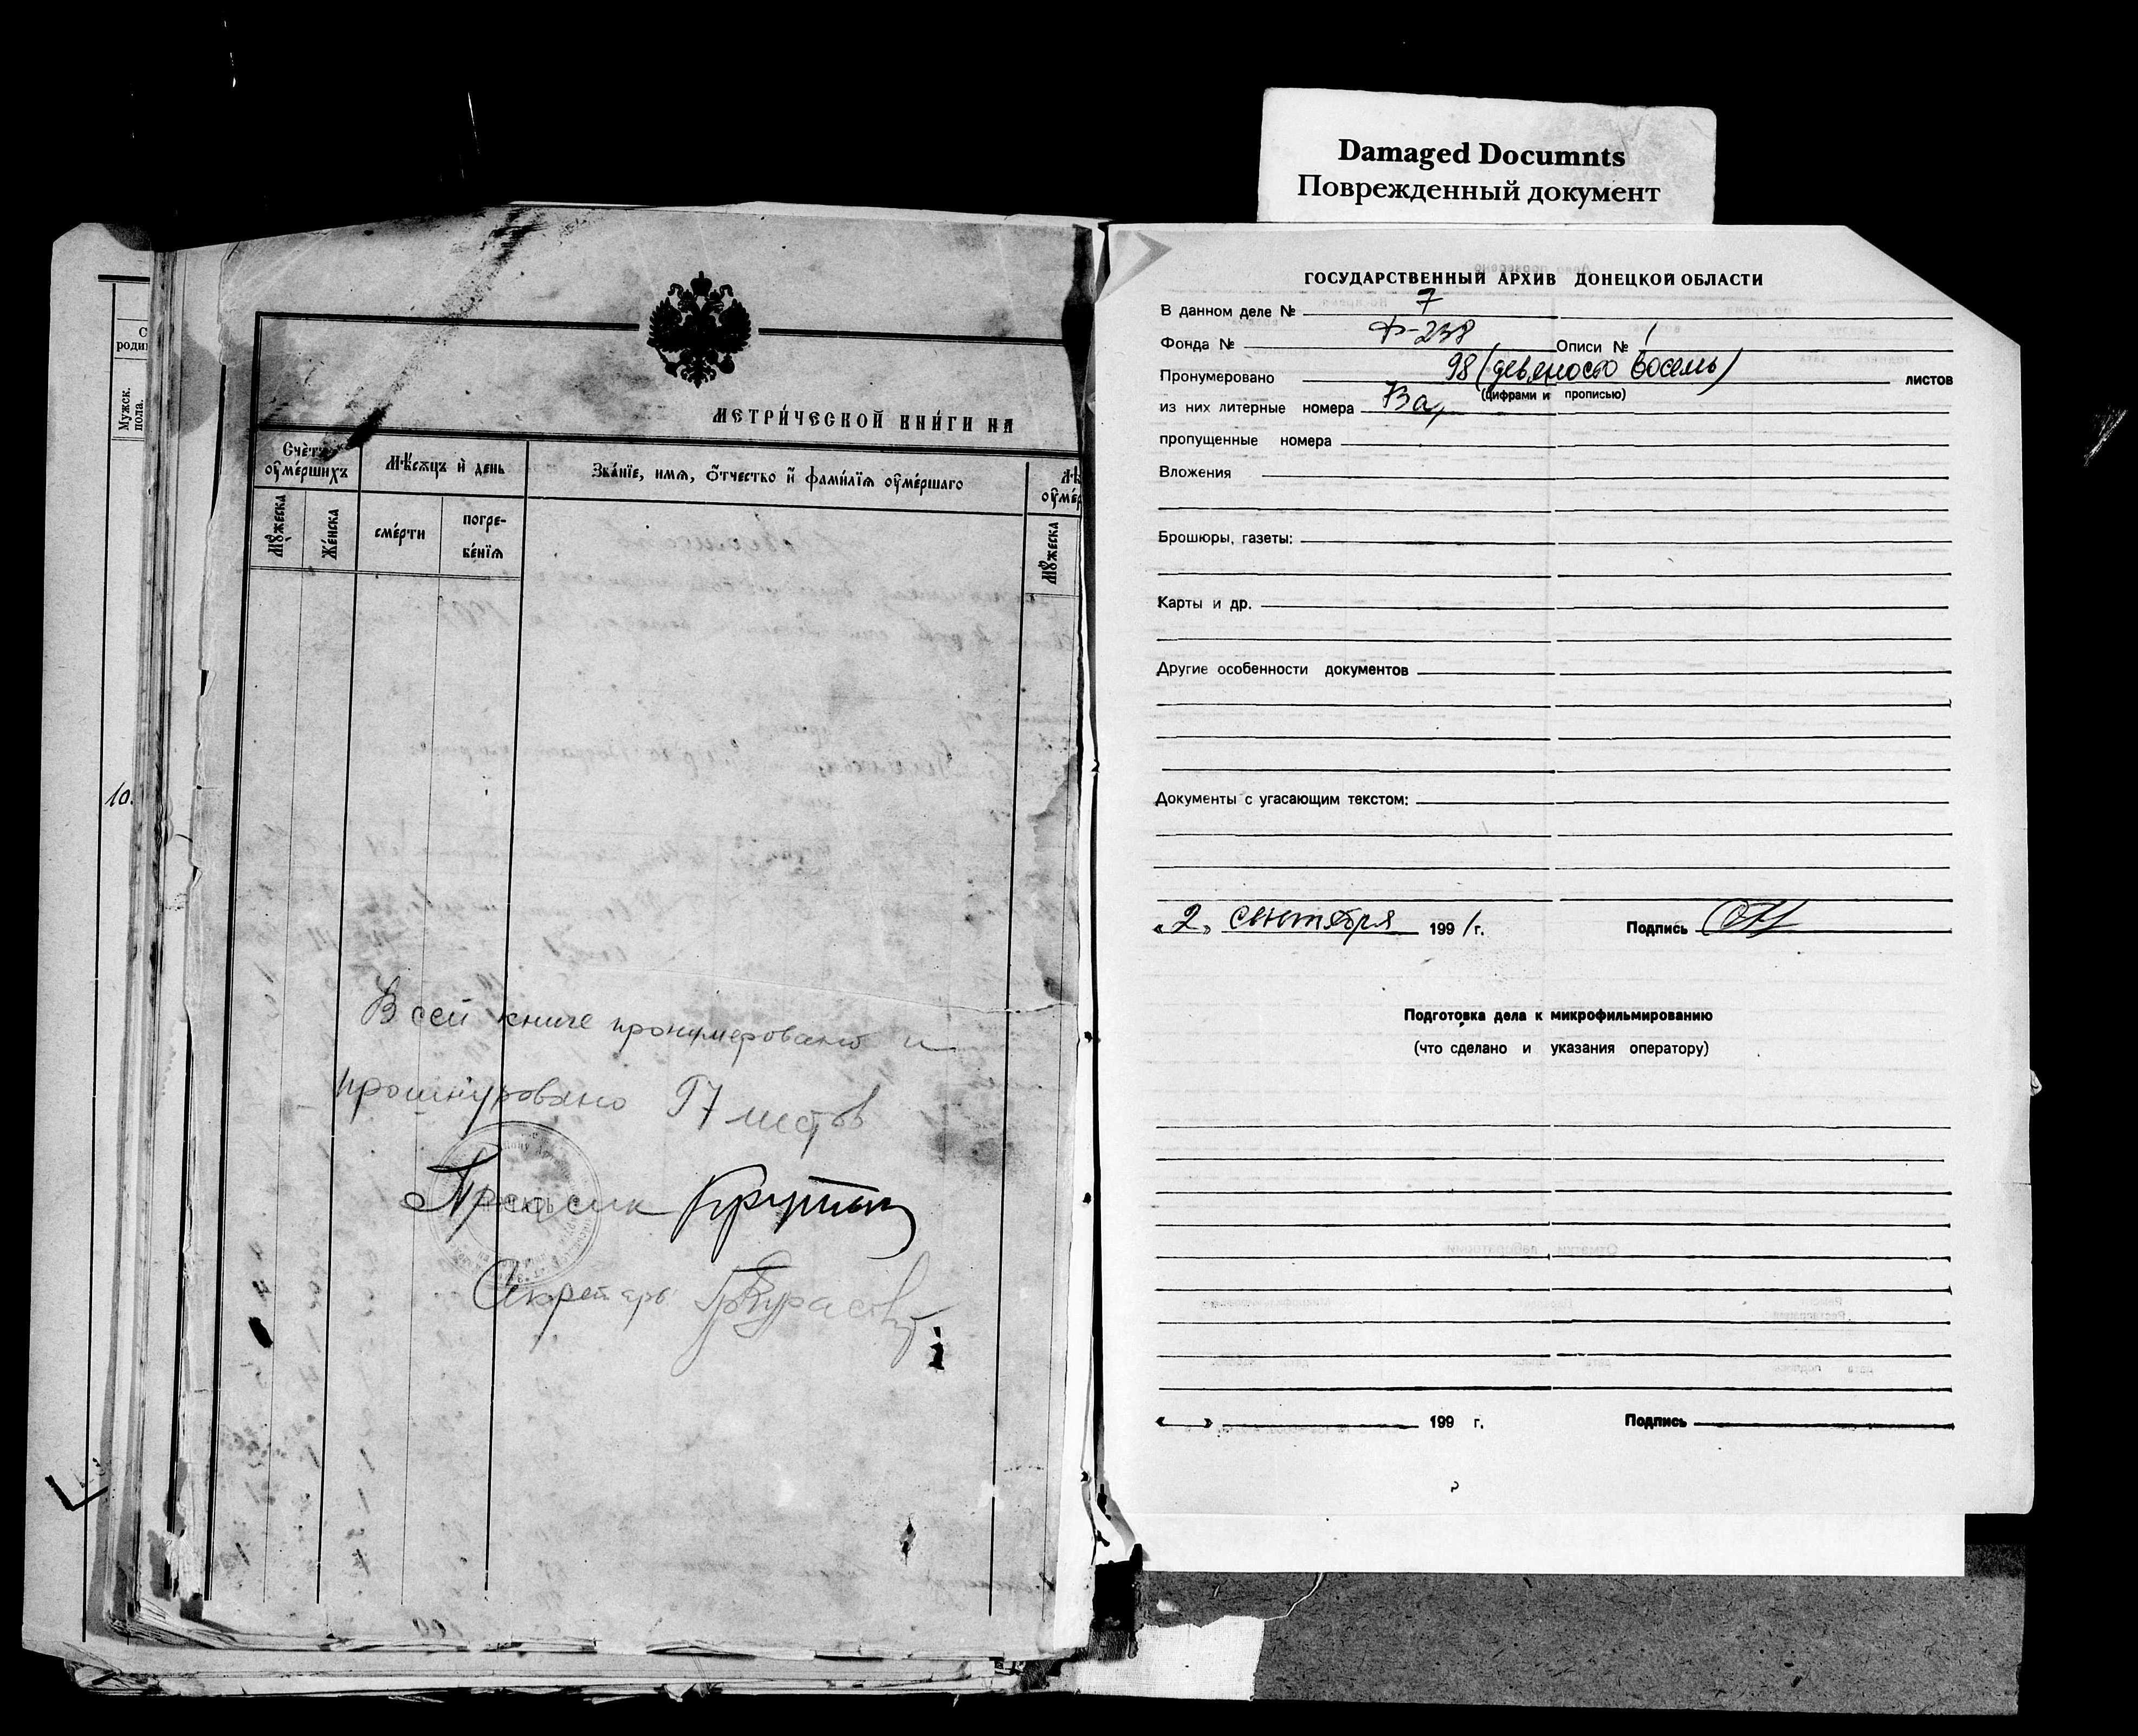 Damaged Documnts
Поврежденный документ
С
роди
Мужск.
пола.
10.
МЕТРИ́ЧЕСКОЙ КНИ́ГИ НА
Счѐтъ
оу҆ме́ршихъ
Мѣ́сѧцъ и҆ день
Зва́нїе, имѧ, ѻ҆́тчество и҆ фами́лїѧ оу҆ме́ршагѡ
Мꙋ́жеска
Же́нска
сме́рти
погре-
бе́нїѧ
Мꙋ́жеска
В сей книге пронумеровано и
прошнуровано 97 листов
Секретарь
ГОСУДАРСТВЕННЫЙ АРХИВ ДОНЕЦКОЙ ОБЛАСТИ
В данном деле № 7
Фонда № Ф-238 Описи № 1
Пронумеровано 98 (девяносто восемь) листов
(цифрами и прописью)
из них литерные номера
пропущенные номера
Вложения
Брошюры, газеты:
Карты и др.
Другие особенности документов
Документы с угасающим текстом:
«2» сентября 1991 г. Подпись
Подготовка дела к микрофильмированию
(что сделано и указания оператору)
« » 199 г. Подпись